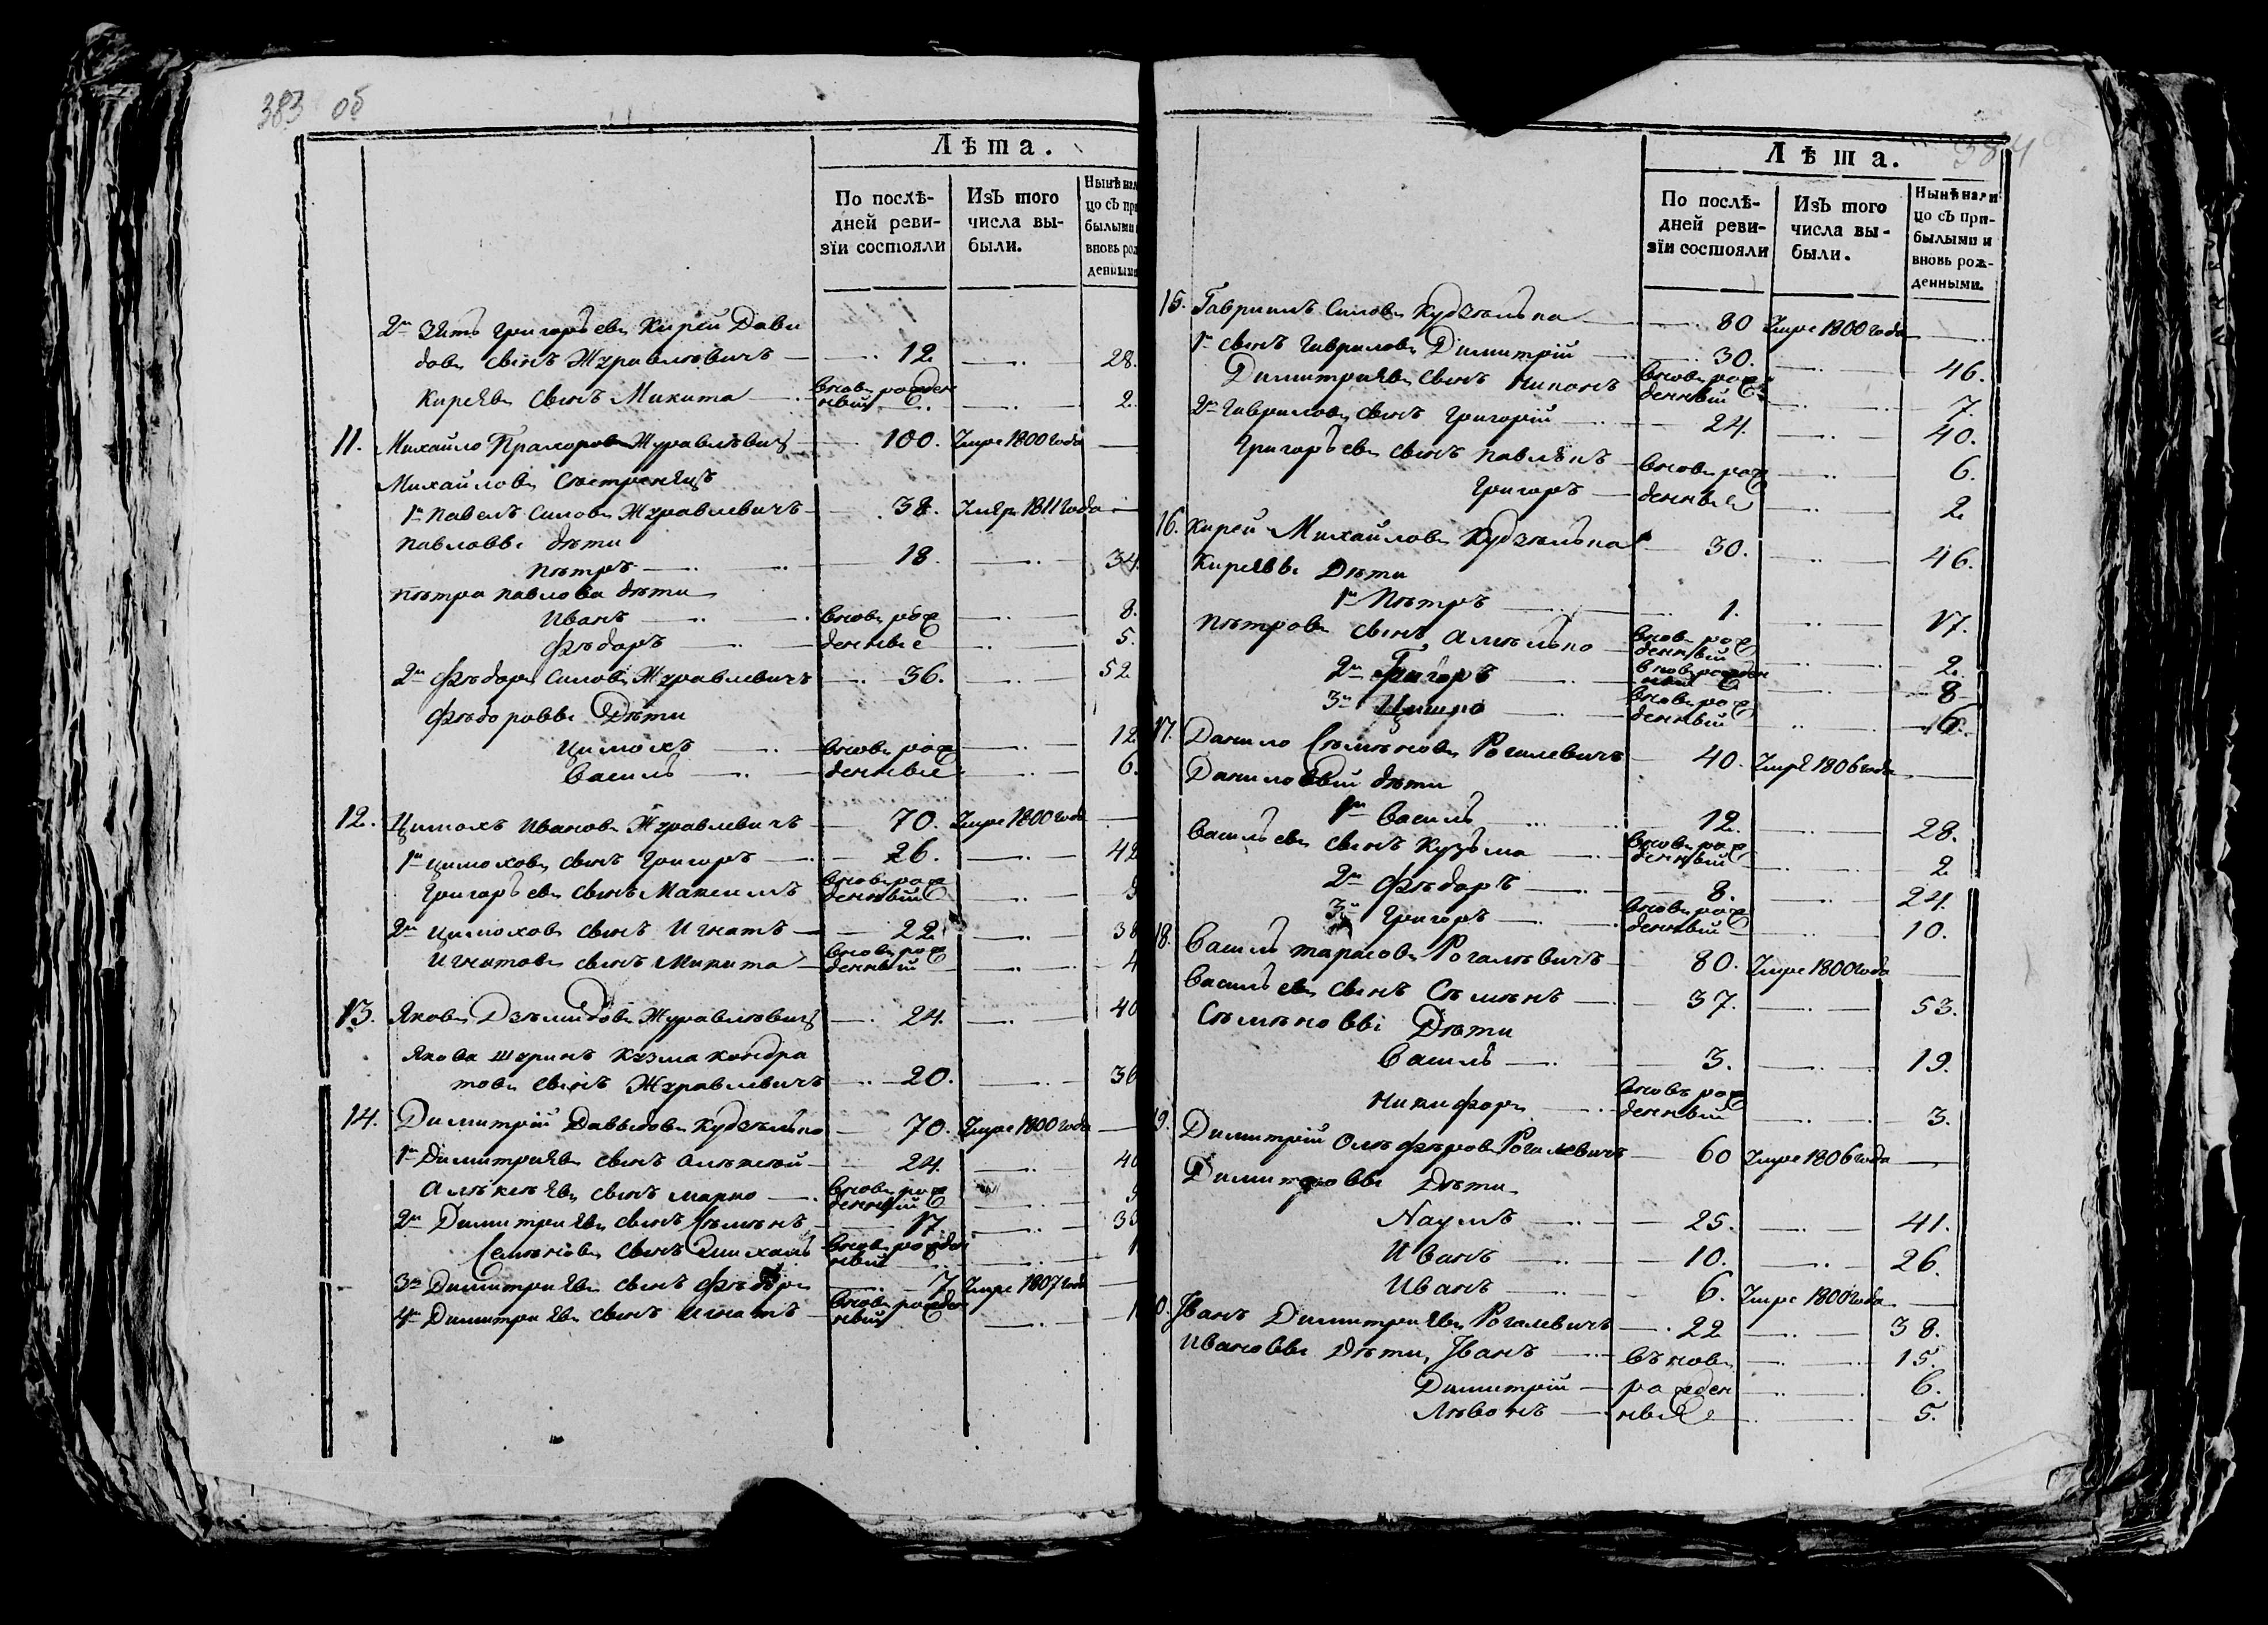 383 об
Лѣта.
По послѣ-
дней реви-
зїи состояли
Изъ того
числа вы-
были.
Нынѣ нал
цо съ при
былыми
вновь рож
денными
2й Зять Григорьевъ Кирей Дави
довъ сынъ Журавлевичъ — 12 — 28.
Киреявъ сынъ Микита — вновь рожден
ный — 2.
11. Михайло Прахоровъ Журавлѣвичъ — 100. Умре 1800 года —
Михайловы Сѣстренцы
1й Павелъ Силовъ Журавлевичъ — 38. Умре 1811 года —
Павловы дѣти
Пѣтръ — 18. — 34.
Пѣтра Павлова дѣти
Иванъ — вновь рож — 8.
Фѣдоръ — денные — 5.
2й Фѣдоръ Силовъ Журавлевичъ — 36. — 52.
Фѣдоровы Дѣти
Цимохъ — вновь рож — 12
Василь — денные — 6.
12. Цимохъ Ивановъ Журавлевичъ — 70. Умре 1800 года —
1й Цимоховъ сынъ Григоръ — 26. — 42
Григорьевъ сынъ Максимъ — вновь рож
денный —
2й Цимоховъ сынъ Игнатъ — 22. — 38
Игнатовъ сынъ Микита — вновь рож
денный — 4
13. Яковъ Дзѣмидовъ Журавлѣвичъ — 24. — 40
Якова Шуринъ Кузма Кондра
товъ сынъ Журавлевичъ — 20. — 36
14. Димитрій Давыдовъ Кудзѣлько — 70. Умре 1800 года —
1й Димитріявъ сынъ Алѣксѣй — 24. — 40
Алѣксѣявъ сынъ Марко — вновь рож
денный —
2й Димитріявъ сынъ Сѣмѣнъ — 17. — 33
Семѣновъ сынъ Михалъ — вновь рожден
ный —
3й Димитріявъ сынъ Фѣдоръ — 7 Умре 1807 года —
4й Димитріявъ сынъ Игнатъ — вновь рожден
ный —
384
Лѣта.
По послѣ-
дней реви-
зїи состояли
Изъ того
числа вы-
были.
Нынѣ нали
цо съ при-
былыми и
вновь рож-
денными.
15. Гаврилъ Силовъ Кудзѣлька — 80 Умре 1800 года —
1й сынъ Гавриловъ Димитрій — 30. — 46.
Димитріявъ сынъ Никонъ — вновь рож
денный — 7.
2й Гавриловъ сынъ Григорій — 24. — 40.
Григорьевъ сынъ Павлюкъ — вновь рож — 6.
Григоръ — денные — 2.
16. Кирей Михайловъ Кудзѣлька — 30. — 46.
Киреявы Дѣти
1й Пѣтръ — 1. — 17.
Пѣтровъ сынъ Амѣлько — вновь рож
денный — 2.
2й Григоръ — вновь рожден
ный — 8
3й Цишко — вновь рож
денный — 6.
17. Данило Сѣмѣновъ Рогалевичъ — 40. Умре 1806 года —
Даниловый дѣти
1й Василь — 12. — 28.
Васильевъ сынъ Кузьма — вновь рож
денный — 2
2й Фѣдоръ — 8. — 24.
3й Григоръ — вновь рож
денный — 10.
18. Василь Тарасовъ Рогалѣвичъ — 80. Умре 1800 года —
Васильевъ сынъ Сѣмѣнъ — 37. — 53.
Сѣмѣновы Дѣти
Василь — 3. — 19.
Никифоръ — вновь рож
денный — 3.
9. Димитрій Олѣфѣровъ Рогалевичъ — 60 Умре 1806 года —
Димитровы Дѣти
Наумъ — 25. — 41.
Иванъ — 10. — 26.
Иванъ — 6. Умре 1800 года —
0. Иванъ Димитріявъ Рогалевичъ — 22 — 38.
Ивановы Дѣти, Иванъ — вновь — 15.
Димитрій — рожден — 6.
Лѣвонъ — ные — 5.